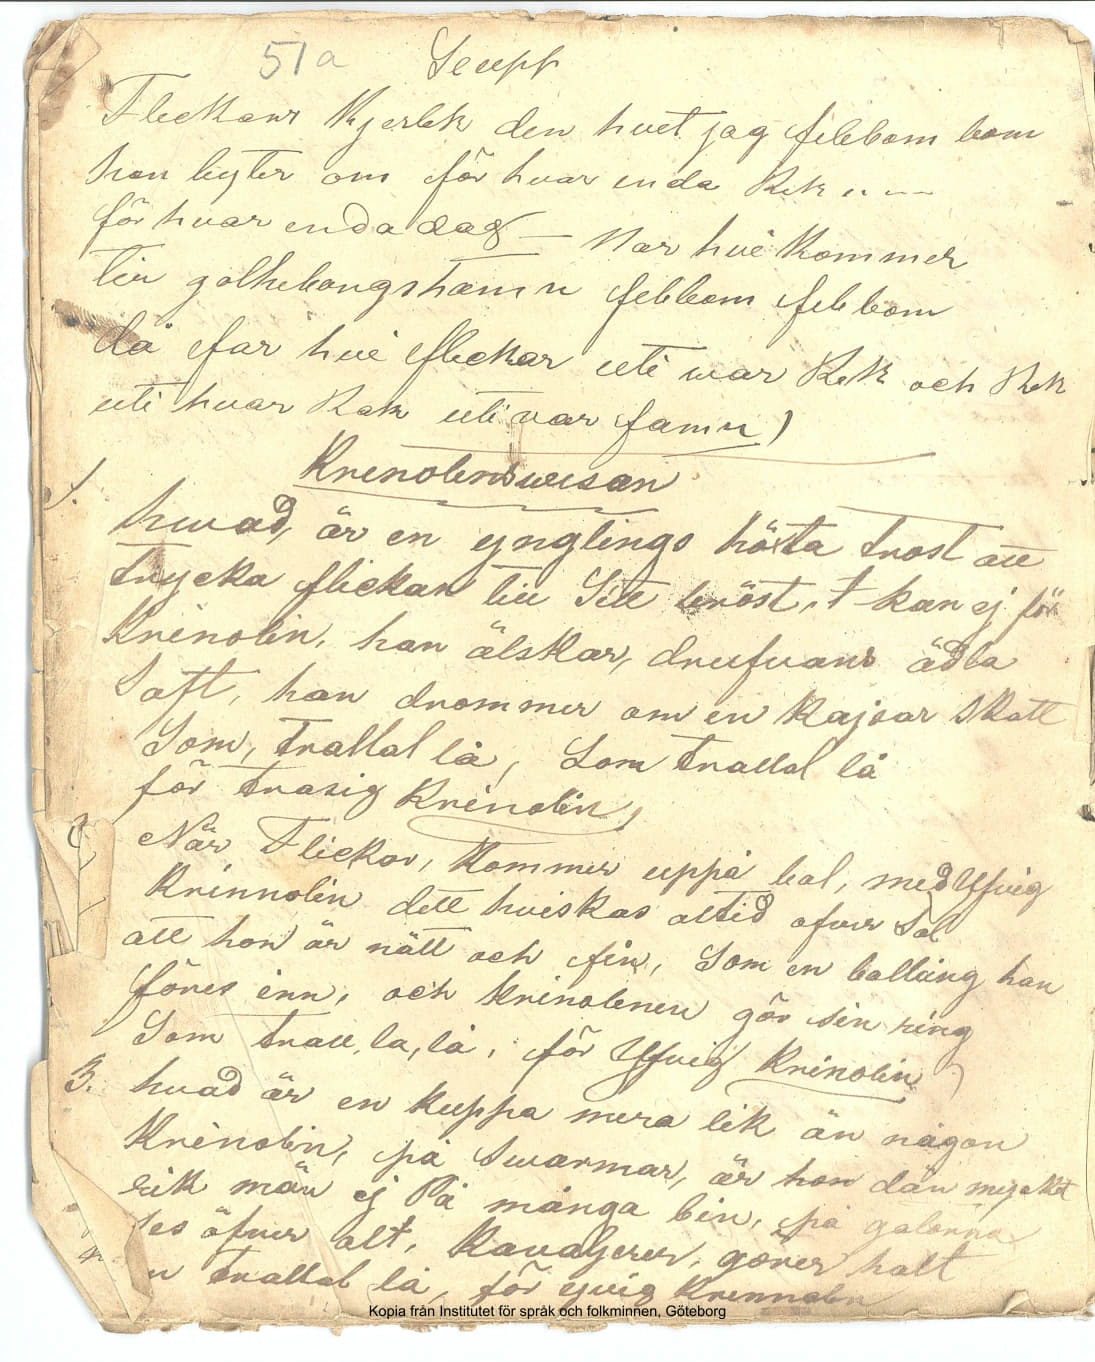 51a Seupp
Flickans Kjerlek den huet jag febbom bom
hon byter om för huar enda Rek " — —
för huar enda dag — Nar hui Kommer
till golhebongshamn febbom febbom
då far hui flickar uti war Rek och Rek
uti huar Rek uti var famn)
Krenolinswisan
1. huad, är en ynglings hösta trost att
trycka flickan till Sitt bröst, + kan ej för
Krinolin, han älskar, drufuans ädla
Saft, han drommer om en Kajsar Skatt
Som, trallal lå, Som trallal lå
för trasig Krinolin,
När Flickor, Kommer uppå bal, med Yfvig
Krinnolin dett huiskas altid öfver Sal
att hon är nätt och fin, Som en ballång han
föres inn, och Krinolinen gör sin ring
Som trall, la, lå, för Yfvig Krinolin
3. huad är en kuppa mera lik än någon
Krinolin, på Swarmar, är hon dän mycket
rik män ej På många bin, på galonna
es öfver alt, Kavaljerer, görer halt
n trallal lå, för yvig Krinnolin
Kopia från Institutet för språk och folkminnen, Göteborg